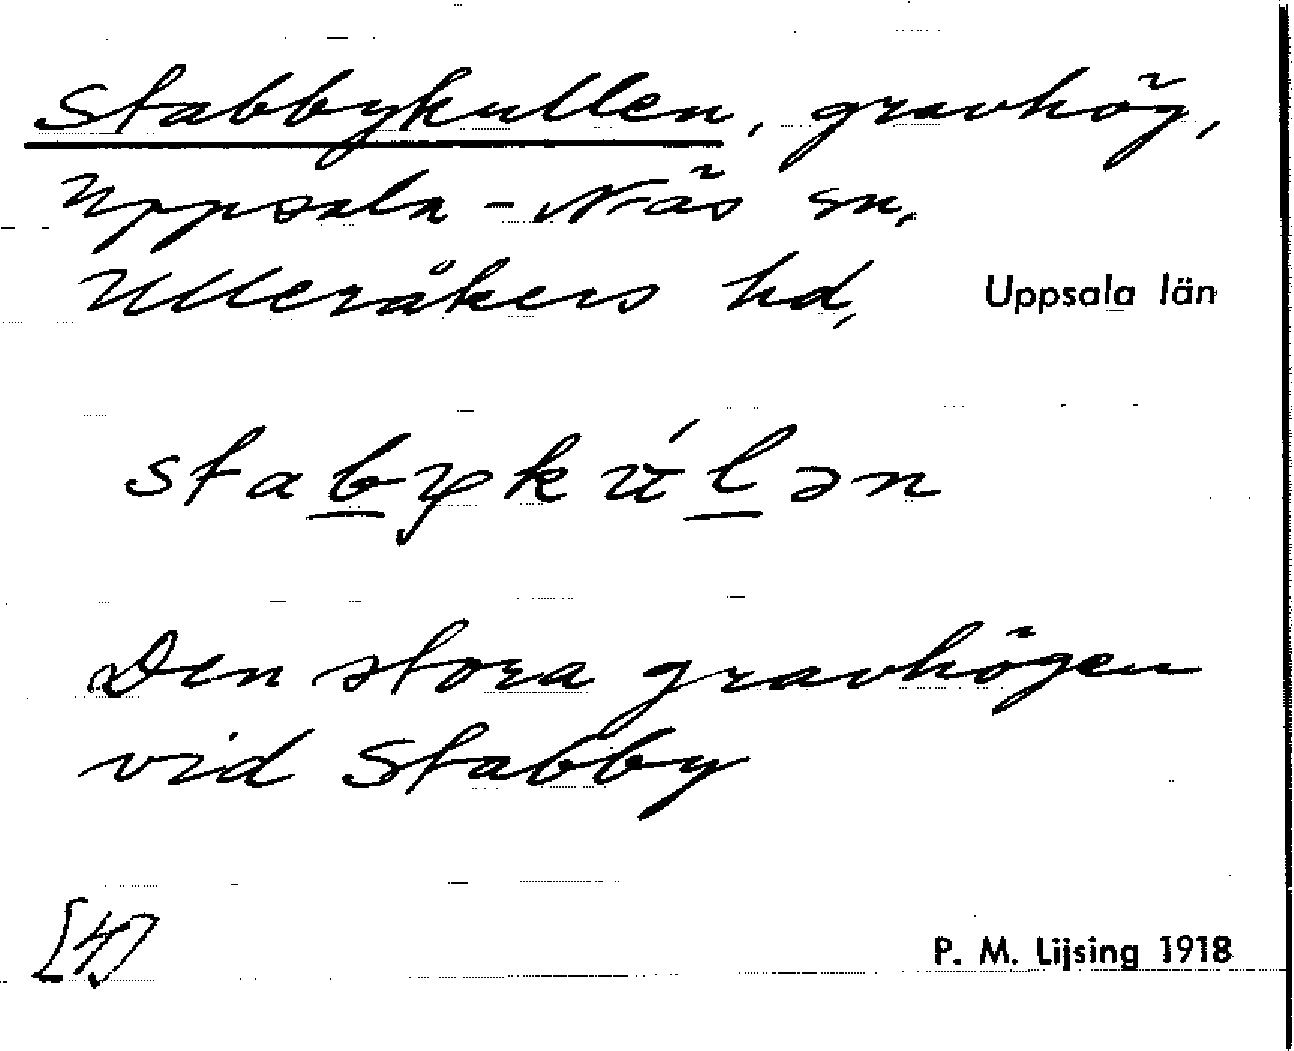 Stabbykullen, gravhög,
Uppsala-Näs sn,
Ulleråkers hd, Uppsala län
stab̲ykúl̲ən
Den stora gravhögen
vid Stabby
[4] P. M. Lijsing 1918